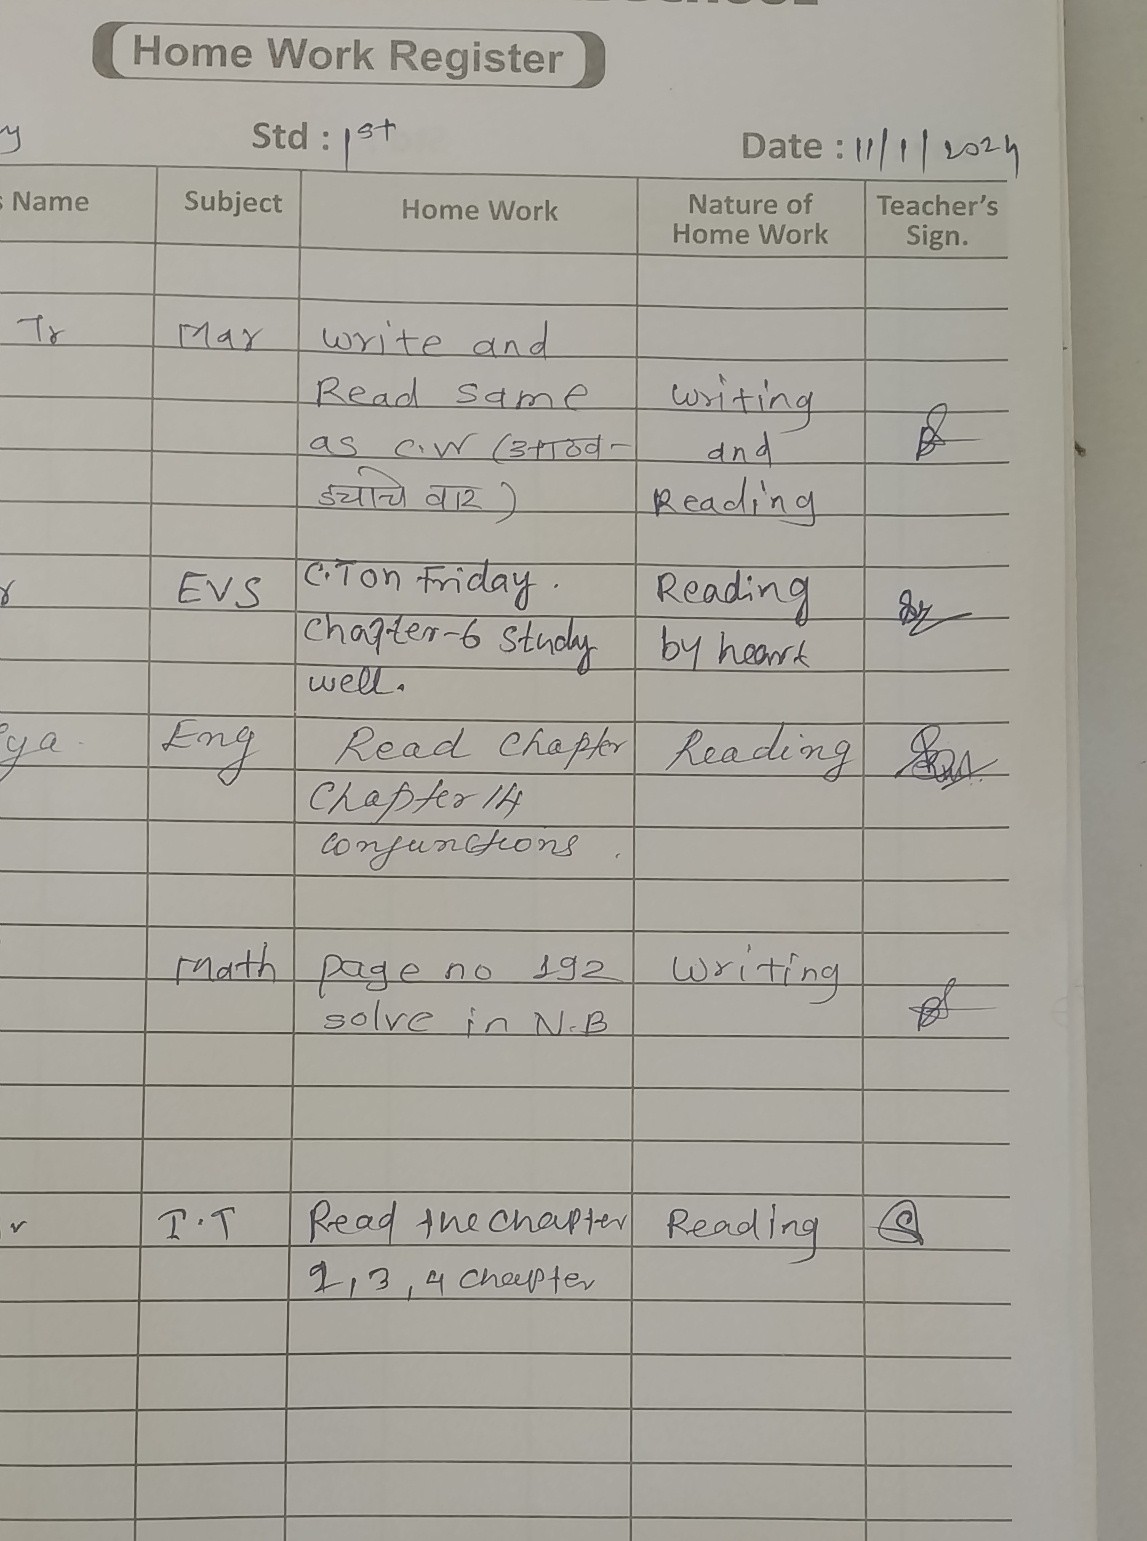 Home Work Register
Std : 1st
Date : 11/1/2024
Name Subject Home Work Nature of Home Work Teacher's Sign.
Tr Mar write and
Read same writing
as C.W (आठव- and
ड्याचे वार) Reading
EVS C.T on Friday. Reading
Chapter-6 study by heart
well.
Eng Read Chapter Reading
Chapter 14
Conjunctions.
Math page no 192 writing
solve in N.B
I.T Read the chapter Reading
2, 3, 4 chapter